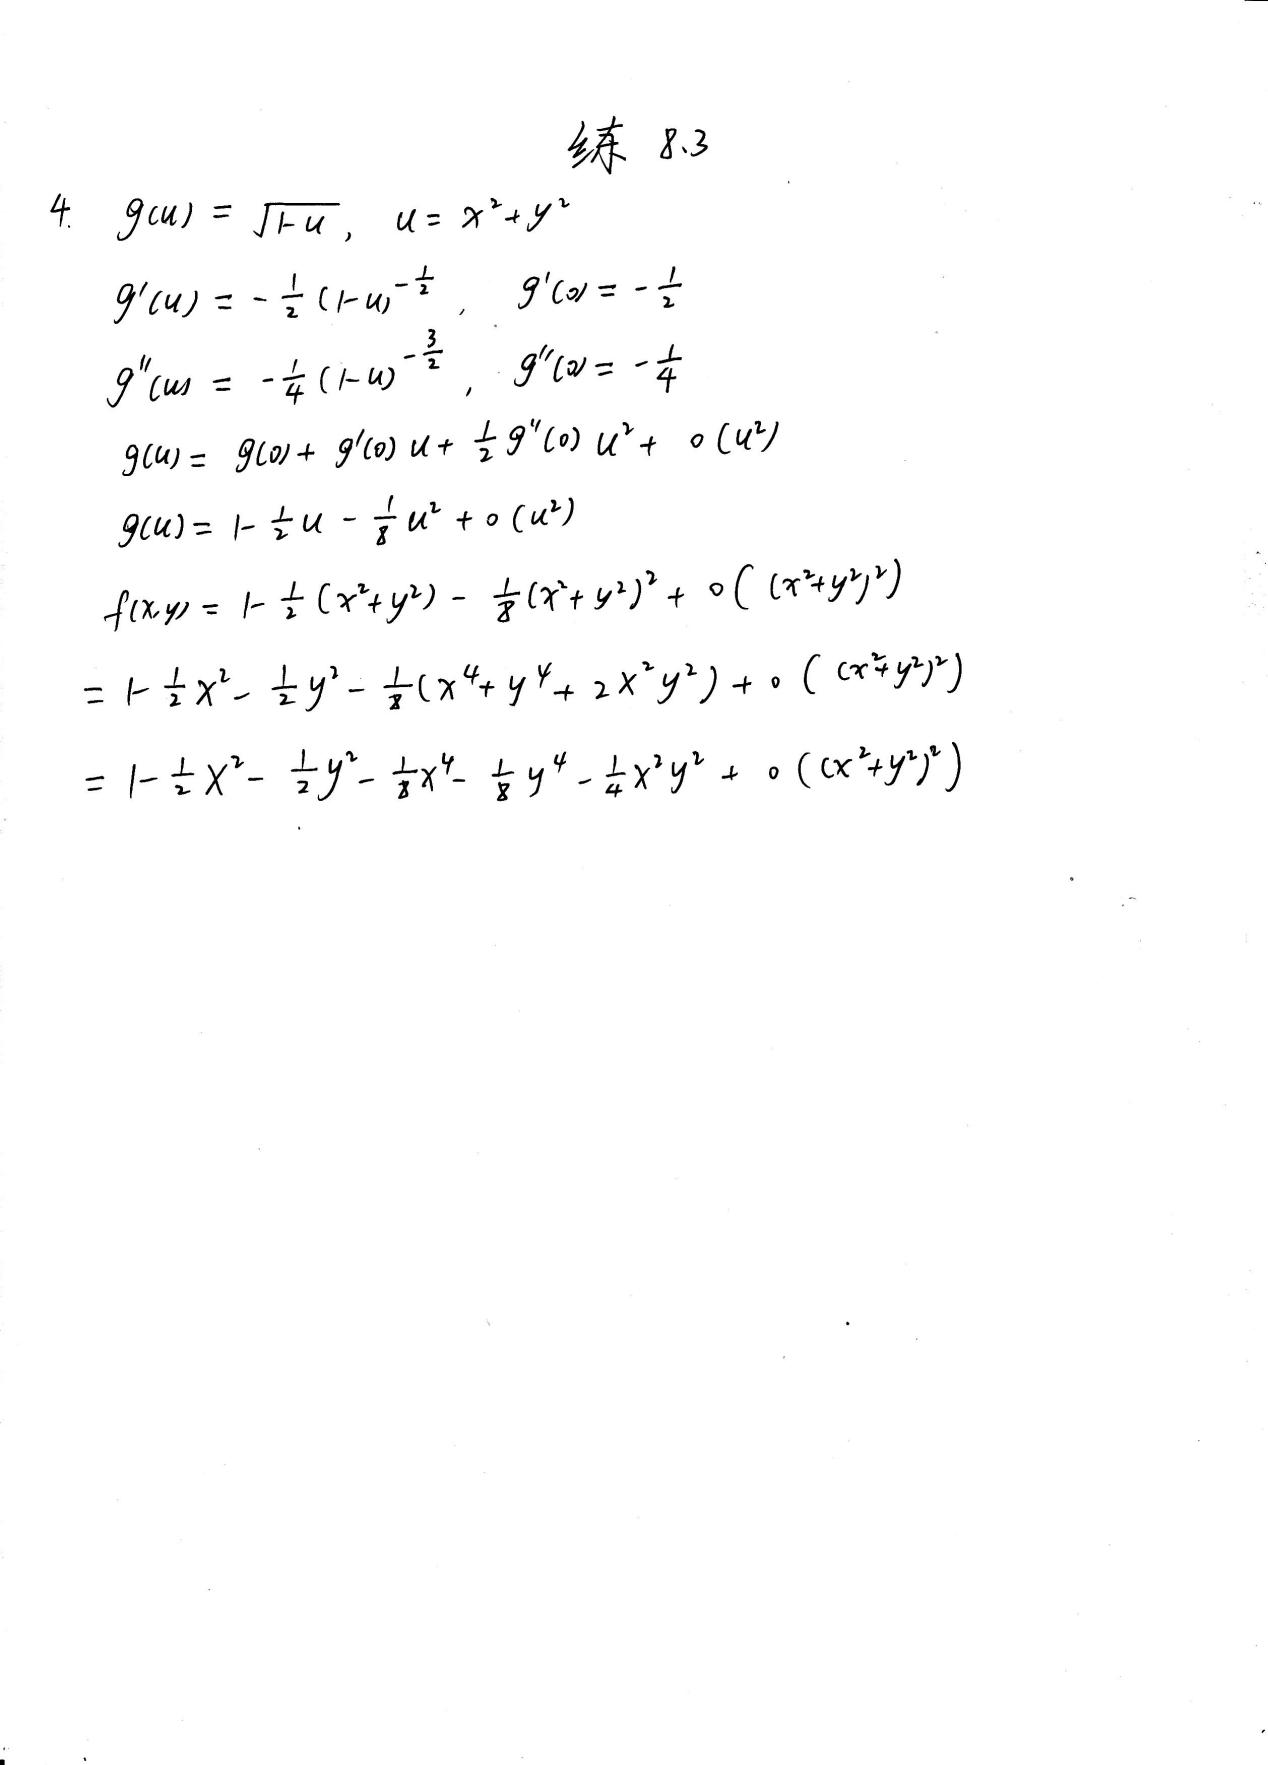 练 8.3
4. g(u) = √(1-u), u = x²+y²
g'(u) = -1/2 (1-u)^(-1/2), g'(0) = -1/2
g''(u) = -1/4 (1-u)^(-3/2), g''(0) = -1/4
g(u) = g(0) + g'(0) u + 1/2 g''(0) u² + o(u²)
g(u) = 1 - 1/2 u - 1/8 u² + o(u²)
f(x,y) = 1 - 1/2 (x²+y²) - 1/8 (x²+y²)² + o((x²+y²)²)
= 1 - 1/2 x² - 1/2 y² - 1/8 (x⁴ + y⁴ + 2x²y²) + o((x²+y²)²)
= 1 - 1/2 x² - 1/2 y² - 1/8 x⁴ - 1/8 y⁴ - 1/4 x²y² + o((x²+y²)²)